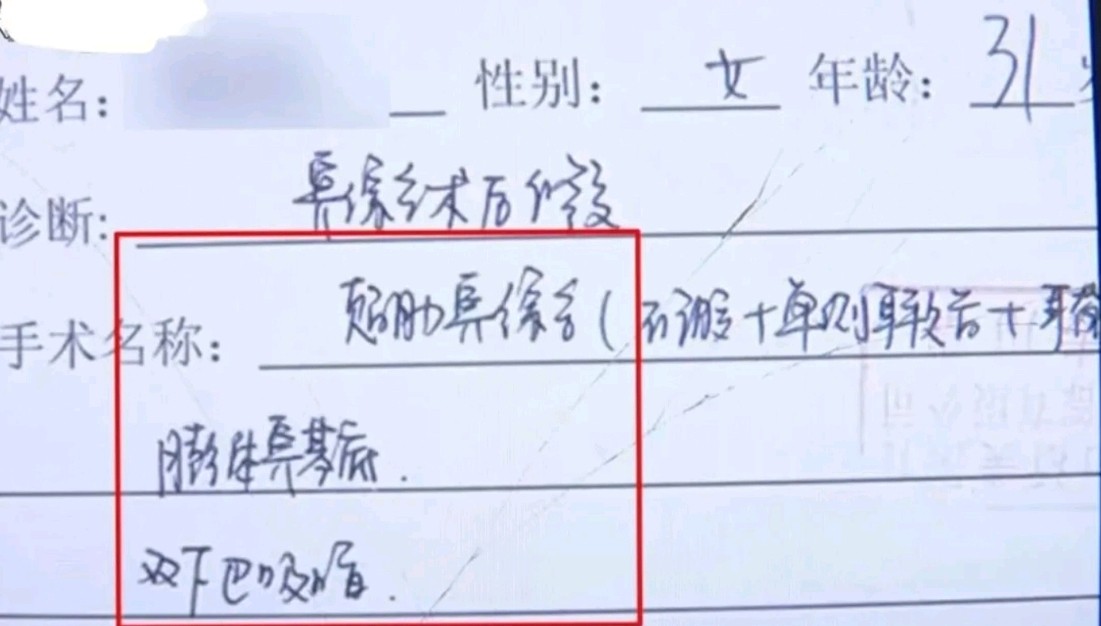 姓名: 性别: 女 年龄: 31
诊断: 鼻综合术后修复
手术名称: 肋鼻综合(硅胶+单侧耳软骨+耳
膨体鼻基底.
双下巴吸脂.